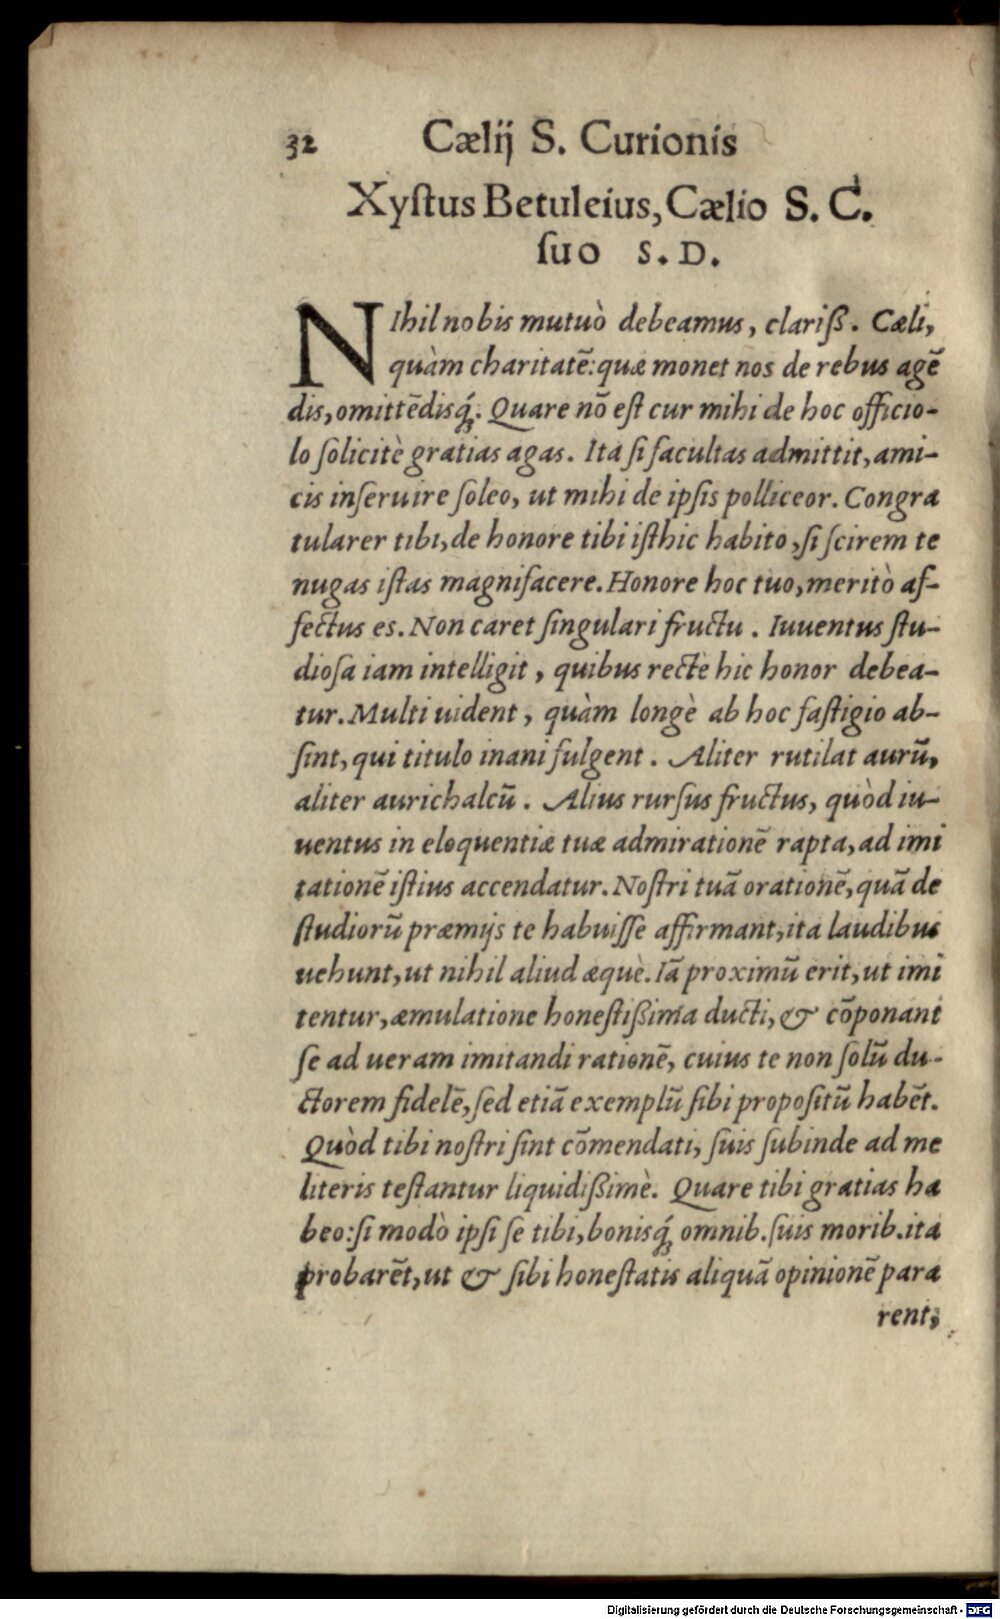 32 Cælij S. Curionis
Xyſtus Betuleius, Cælio S. C.
ſuo S. D.
NIhil nobis mutuò debeamus, clariß. Cæli,
quàm charitatē: quæ monet nos de rebus agē
dis, omittēdisq́;. Quare nō eſt cur mihi de hoc officio-
lo ſolicitè gratias agas. Ita ſi facultas admittit, ami-
cis inſeruire ſoleo, ut mihi de ipſis polliceor. Congra
tularer tibi, de honore tibi iſthic habito, ſi ſcirem te
nugas iſtas magnifacere. Honore hoc tuo, meritò af-
fectus es. Non caret ſingulari fructu. Iuuentus ſtu-
dioſa iam intelligit, quibus rectè hic honor debea-
tur. Multi uident, quàm longè ab hoc faſtigio ab-
ſint, qui titulo inani fulgent. Aliter rutilat aurū,
aliter aurichalcū. Alius rurſus fructus, quòd iu-
uentus in eloquentiæ tuæ admirationē rapta, ad imi
tationē iſtius accendatur. Noſtri tuā orationē, quā de
ſtudiorū præmijs te habuiſſe affirmant, ita laudibus
uehunt, ut nihil aliud æquè. Iā proximū erit, ut imi
tentur, æmulatione honeſtißima ducti, & cōponant
ſe ad ueram imitandi rationē, cuius te non ſolū du-
ctorem fidelē, ſed etiā exemplū ſibi propoſitū habēt.
Quòd tibi noſtri ſint cōmendati, ſuis ſubinde ad me
literis teſtantur liquidißimè. Quare tibi gratias ha
beo: ſi modò ipſi ſe tibi, bonisq́; omnib. ſuis morib. ita
probarēt, ut & ſibi honeſtatis aliquā opinionē para
rent,
Digitalisierung gefördert durch die Deutsche Forschungsgemeinschaft - DFG